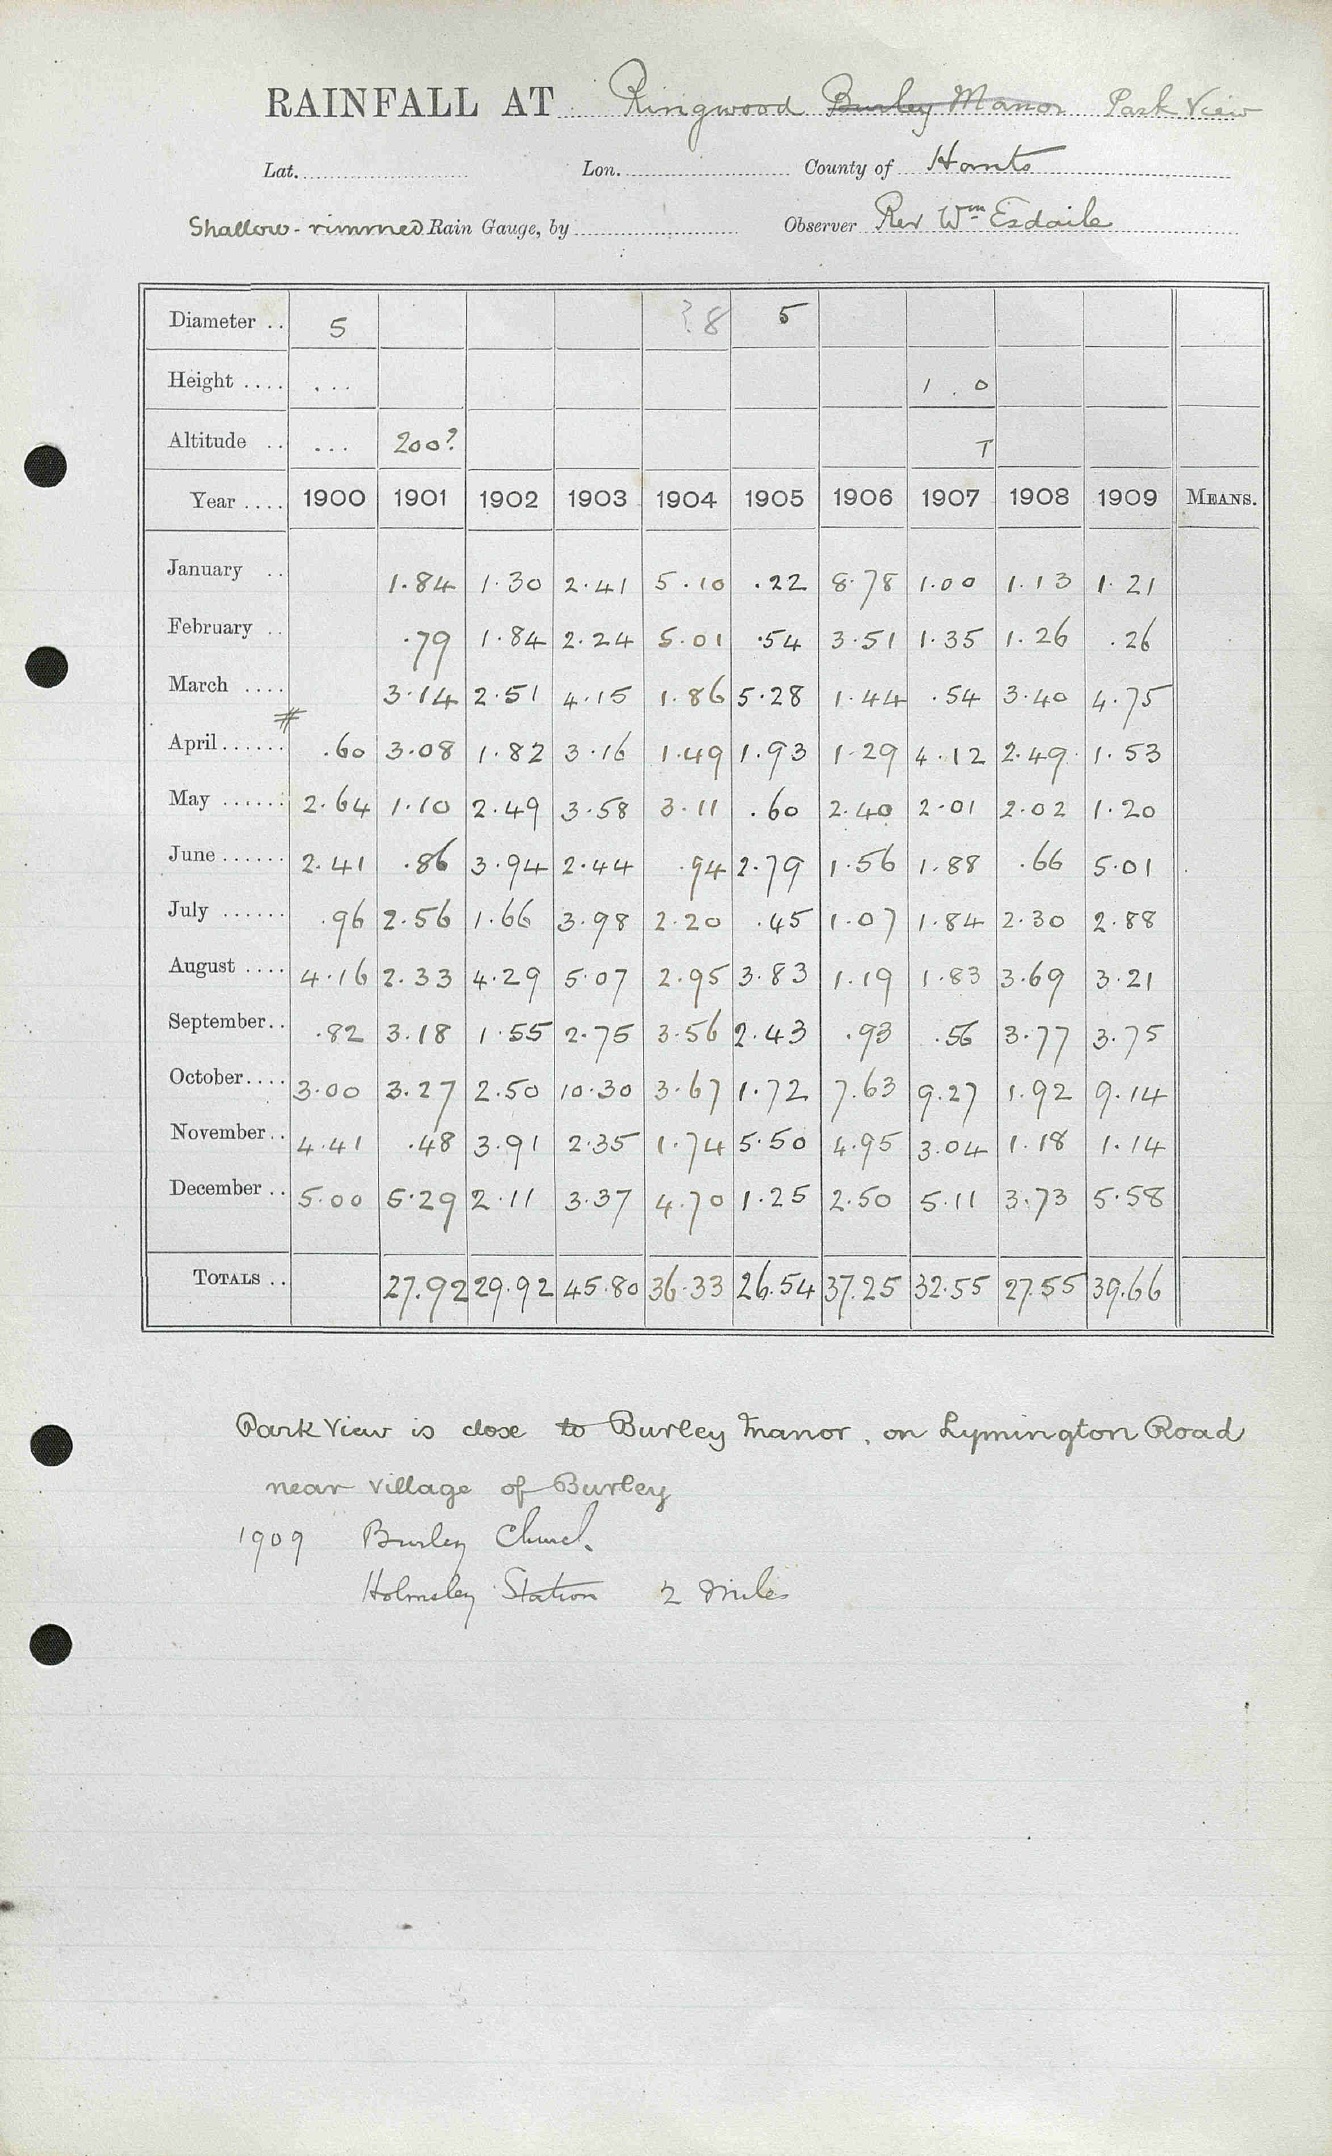 RAINFALL AT Ringwood Burley Manor Park View
Lat. Lon. County of Hants
Shallow-rimmed Rain Gauge, by Observer Rev Wm Esdaile
Diameter .. 5 ?8 5
Height .... ... 1 . 0
Altitude .. ... 200? T
Year .... 1900 1901 1902 1903 1904 1905 1906 1907 1908 1909 MEANS.
January .. 1.84 1.30 2.41 5.10 .22 8.78 1.00 1.13 1.21
February .. .79 1.84 2.24 5.01 .54 3.51 1.35 1.26 .26
March .... 3.14 2.51 4.15 1.86 5.28 1.44 .54 3.40 4.75
#
April...... .60 3.08 1.82 3.16 1.49 1.93 1.29 4.12 2.49 1.53
May ...... 2.64 1.10 2.49 3.58 3.11 .60 2.40 2.01 2.02 1.20
June...... 2.41 .86 3.94 2.44 .94 2.79 1.56 1.88 .66 5.01
July ...... .96 2.56 1.66 3.98 2.20 .45 1.07 1.84 2.30 2.88
August .... 4.16 2.33 4.29 5.07 2.95 3.83 1.19 1.83 3.69 3.21
September.. .82 3.18 1.55 2.75 3.56 2.43 .93 .56 3.77 3.75
October.... 3.00 3.27 2.50 10.30 3.67 1.72 7.63 9.27 1.92 9.14
November.. 4.41 .48 3.91 2.35 1.74 5.50 4.95 3.04 1.18 1.14
December .. 5.00 5.29 2.11 3.37 4.70 1.25 2.50 5.11 3.73 5.58
TOTALS .. 27.92 29.92 45.80 36.33 26.54 37.25 32.55 27.55 39.66
Park View is close to Burley Manor, on Lymington Road
near village of Burley
1909 Burley Church.
Holmsley Station 2 miles